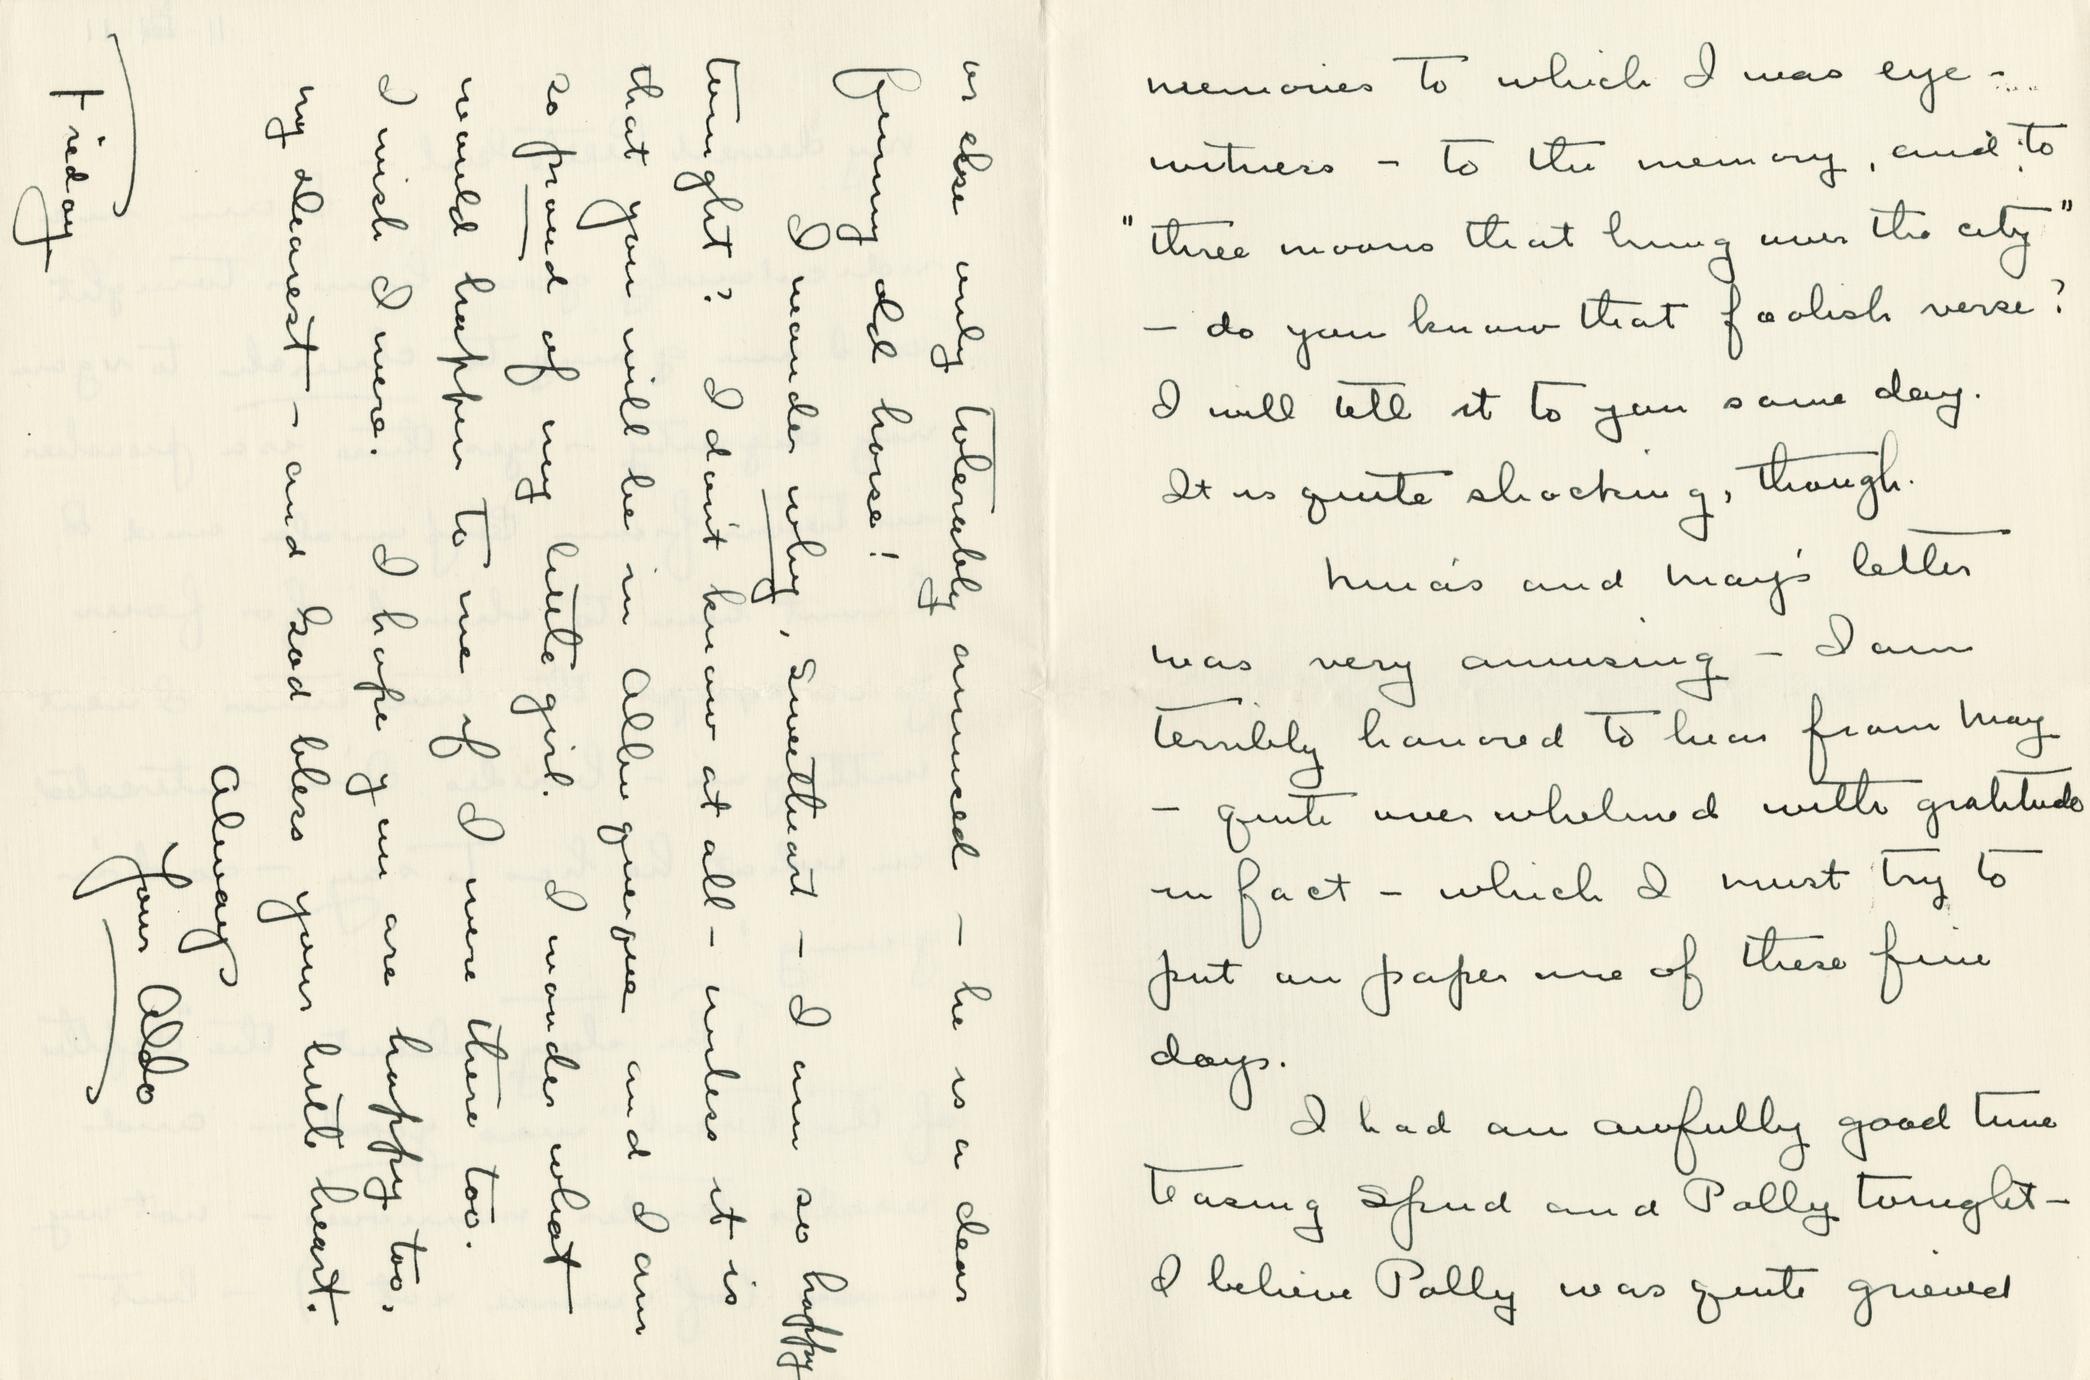 memories to which I was eye-
witness - to the memory, and to
"three moons that hung over the city"
- do you know that foolish verse?
I will tell it to you some day.
It is quite shocking, though.
Nina's and May's letter
was very amusing - I am
terribly honored to hear from May
- quite overwhelmed with gratitude
in fact - which I must try to
put on paper one of these fine
days.
I had an awfully good time
teasing Spud and Polly tonight -
I believe Polly was quite grieved
or else only tolerably amused - he is a dear
funny old horse!
I wonder why, Sweetheart - I am so happy
tonight? I don't know at all - unless it is
that you will be in Albuquerque and I am
so proud of my little girl. I wonder what
would happen to me if I were there too.
I wish I were. I hope you are happy too,
my dearest - and God bless your little heart.
Always
Your Aldo
Friday